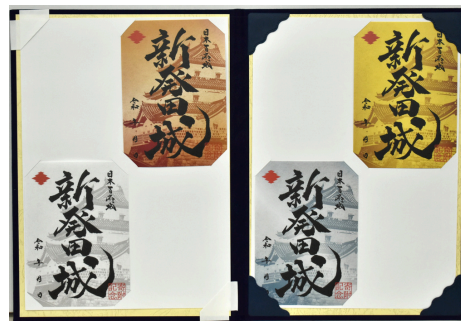 日本百名城
新発田城
令和 年 月 日
日本百名城
新発田城
令和 年 月 日
日本百名城
新発田城
令和 年 月 日
日本百名城
新発田城
令和 年 月 日